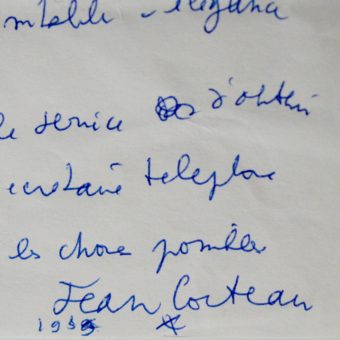 élégance
le service d'obtenir
secrétaire telephone
les choses possibles
Jean Cocteau
195